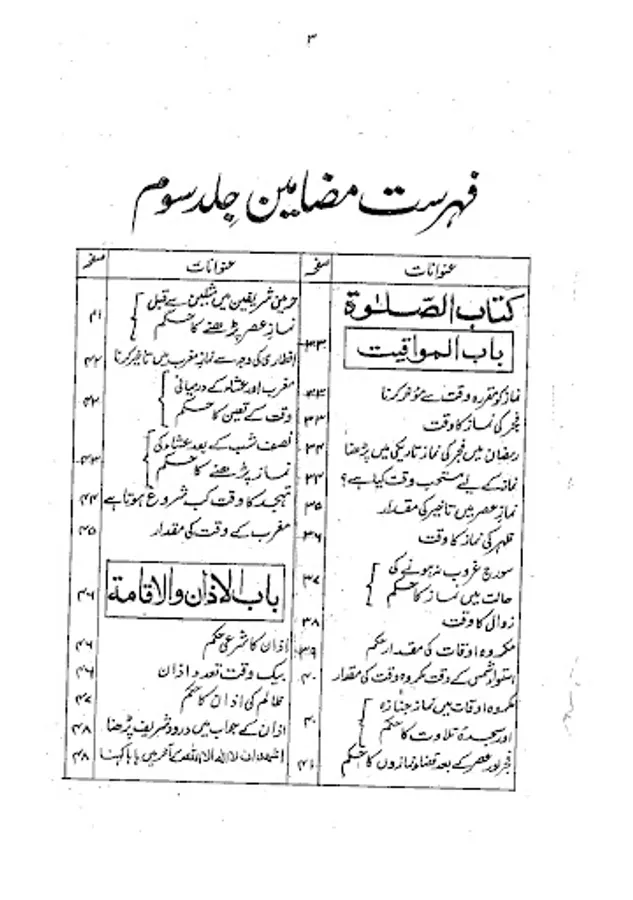 ۳
فہرست مضامین جلد سوم
عنوانات صفحہ
کتاب الصّلوٰة
باب المواقیت ۳۳
نماز کو مقررہ وقت سے مؤخر کرنا ۳۳
فجر کی نماز کا وقت ۳۳
رمضان میں فجر کی نماز تاریکی میں پڑھنا ۳۴
نماز کے لیے مستحب وقت کیا ہے؟ ۳۴
نماز عصر میں تاخیر کی مقدار ۳۵
ظہر کی نماز کا وقت ۳۶
سورج غروب نہ ہونے کی
حالت میں نماز کا حکم ۳۷
زوال کا وقت ۳۸
مکروہ اوقات کی مقدار حکم ۳۹
استواء شمس کے وقت مکروہ وقت کی مقدار ۴۰
مکروہ اوقات میں نماز جنازہ
اور سجدۂ تلاوت کا حکم ۴۰
فجر اور عصر کے بعد قضا نمازوں کا حکم ۴۱
عنوانات صفحہ
حرمین شریفین میں مثلین سے قبل
نماز عصر پڑھنے کا حکم ۴۱
افطاری کی وجہ سے نماز مغرب میں تاخیر کرنا ۴۲
مغرب اور عشاء کے درمیانی
وقت کے تعین کا حکم ۴۲
نصف شب کے بعد عشاء کی
نماز پڑھنے کا حکم ۴۳
تہجد کا وقت کب شروع ہوتا ہے ۴۴
مغرب کے وقت کی مقدار ۴۵
باب الاذان والاقامة ۴۶
اذان کا شرعی حکم ۴۶
بیک وقت تعدد اذان ۴۶
ظالم کی اذان کا حکم ۴۷
اذان کے جواب میں درود شریف پڑھنا ۴۸
اشہد ان لا الٰہ الا اللہ کے آخر میں ہا کہنا ۴۸